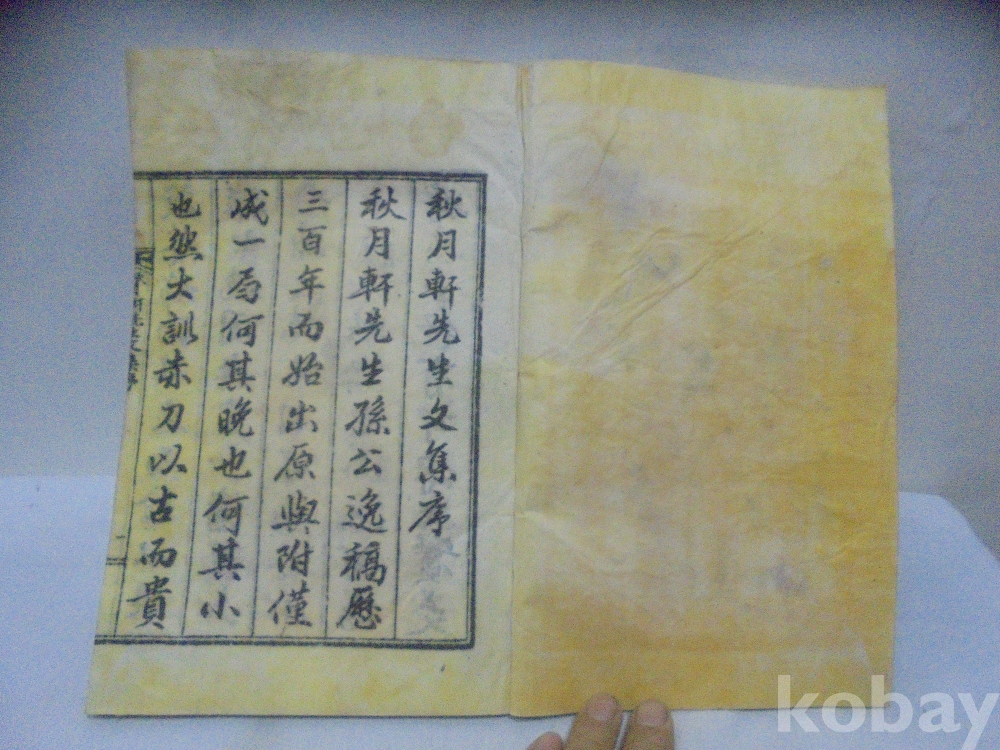 秋月軒先生文集序
秋月軒先生孫公逸稿歷
三百年而始出原與附僅
成一局何其晚也何其小
也然大訓赤刀以古而貴
kobay